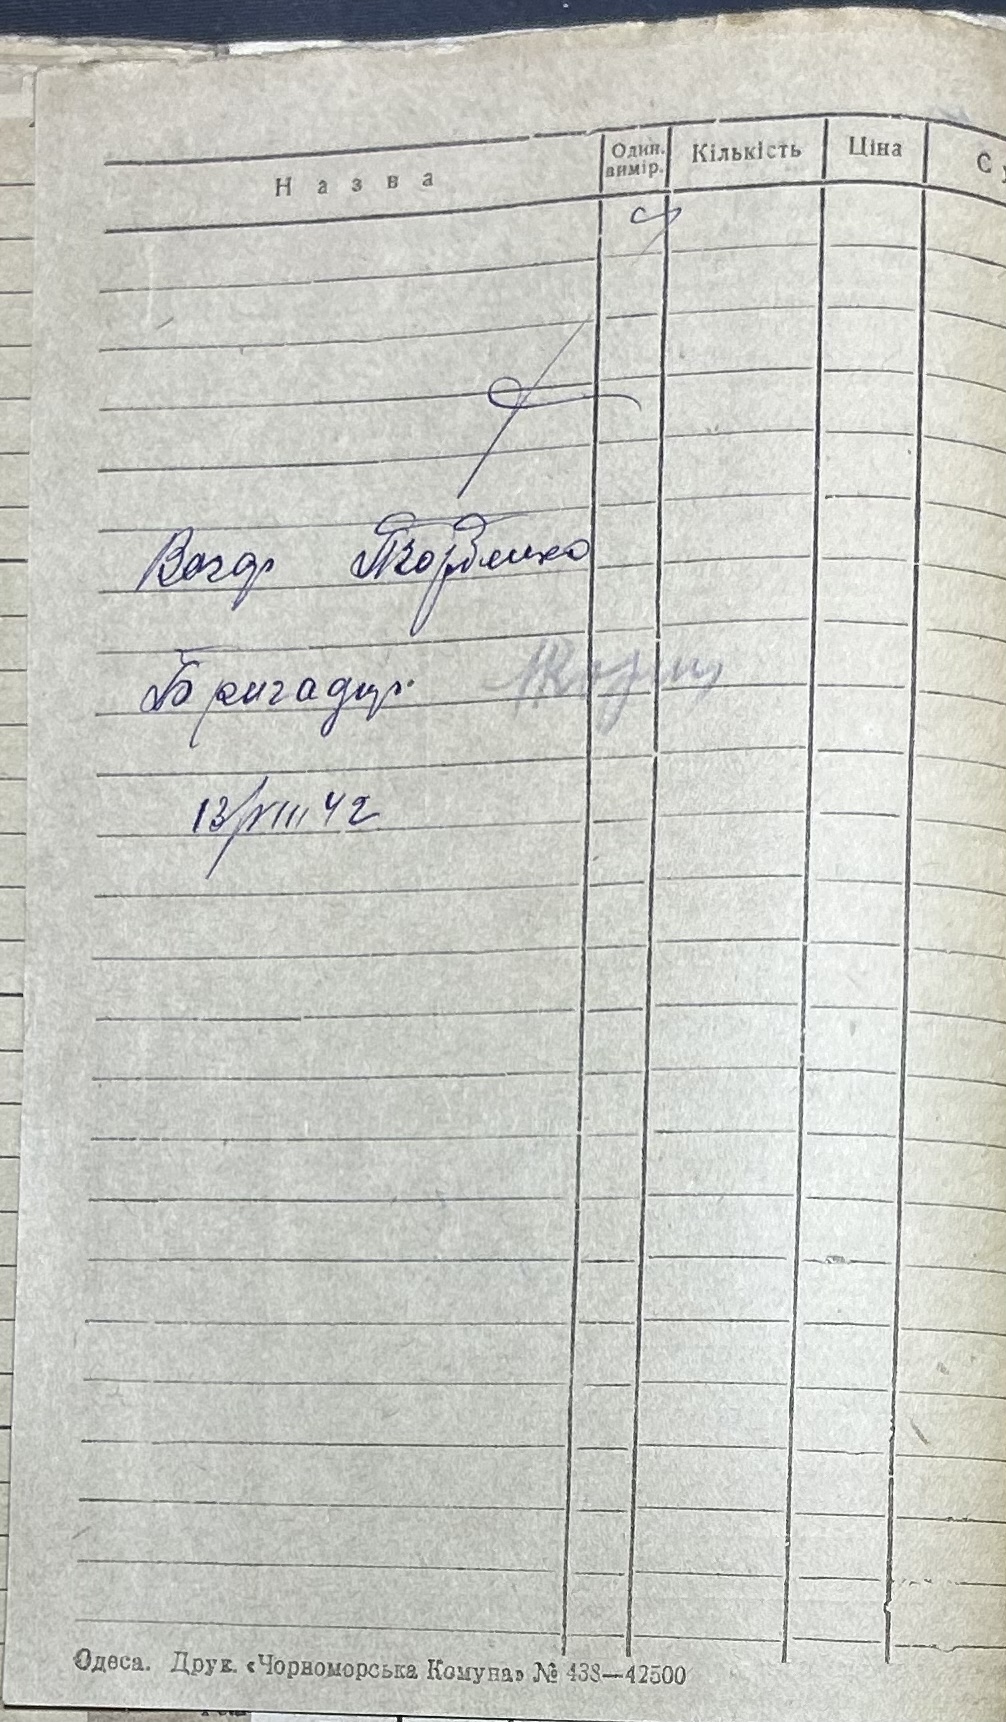 Назва Один. вимір. Кількість Ціна Су
Бригадир.
13/VIII 42
Одеса. Друк. «Чорноморська Комуна» № 438—42500